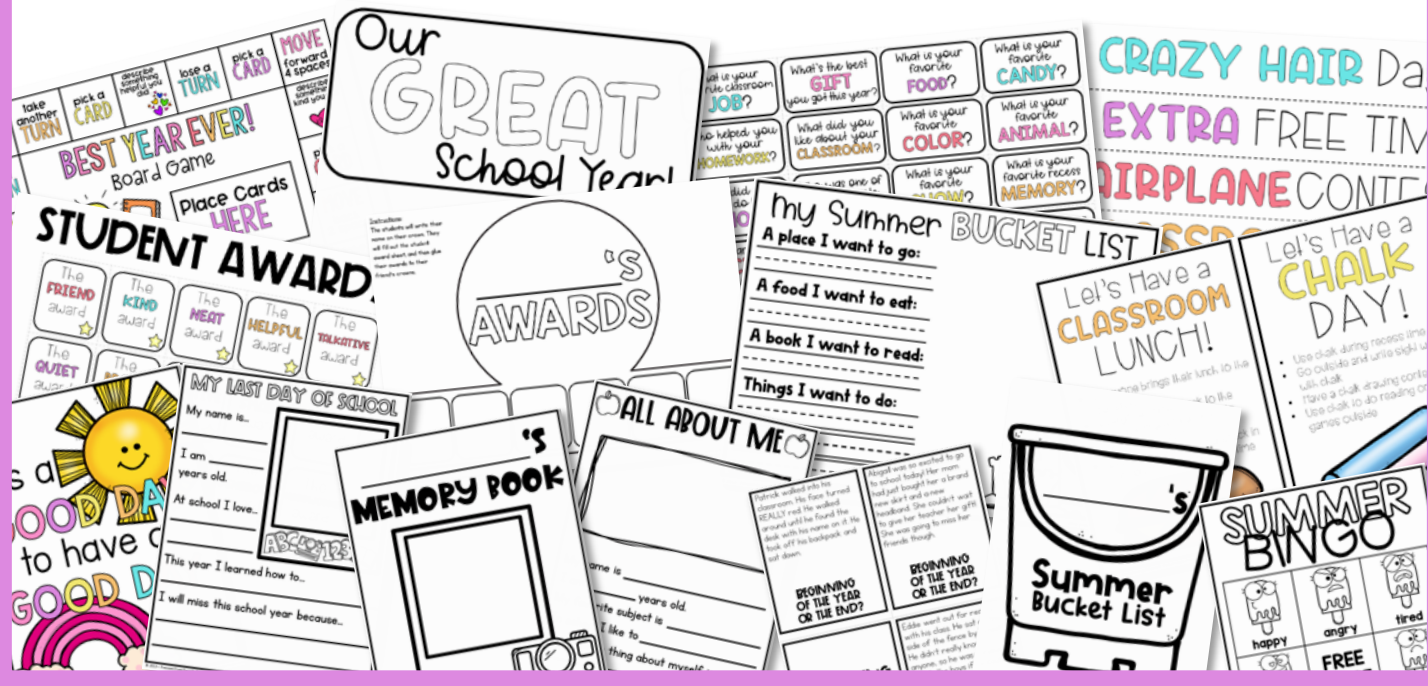 take
another
TURN
pick a
CARD
describe
something
helpful you
did
lose a
TURN
pick a
CARD
MOVE
forward
4 spaces
BEST YEAR EVER!
Board Game
Place Cards
HERE
Our
GREAT
School Year!
JOB?
What's the best
GIFT
you got this year?
What is your
favorite
FOOD?
What is your
favorite
CANDY?
helped you
with your
HOMEWORK?
What did you
like about your
CLASSROOM?
What is your
favorite
COLOR?
What is your
favorite
ANIMAL?
was one of
What is your
favorite
What is your
favorite recess
MEMORY?
CRAZY HAIR
EXTRA FREE
AIRPLANE
STUDENT AWARD
The
FRIEND
award
The
KIND
award
The
NEAT
award
The
HELPFUL
award
The
TALKATIVE
award
The
QUIET
The
Instructions:
The students will write their
name on their crown. They
will fill out the student
award sheet and then glue
their awards to their
friend's crowns.
'S
AWARDS
My Summer BUCKET LIST
A place I want to go:
A food I want to eat:
A book I want to read:
Things I want to do:
Let's Have a
CLASSROOM
LUNCH!
brings their lunch to the
Let's Have a
CHALK
DAY!
Use chalk during recess time
Go outside and write sight
with chalk
Have a chalk drawing
Use chalk to do reading
games outside
a
GOOD
to have
GOOD
MY LAST DAY OF SCHOOL
My name is...
I am
years old.
At school I love...
ABC 123
This year I learned how to...
I will miss this school year because...
'S
MEMORY BOOK
ALL ABOUT ME
name is
years old.
subject is
I like to
thing about myself
Patrick walked into his
classroom. His face turned
REALLY red. He walked
around until he found the
desk with his name on it. He
took off his backpack and
sat down.
BEGINNING
OF THE YEAR
OR THE END?
Abigail was so excited to go
to school today! Her mom
had just bought her a brand
new skirt and a new
headband. She couldn't wait
to give her teacher her gift!
She was going to miss her
friends though.
BEGINNING
OF THE YEAR
OR THE END?
Eddie went out for
with his class. He sat
side of the fence by
He didn't really
anyone, so he was
'S
Summer
Bucket List
SUMMER
BINGO
happy
angry
tired
FREE